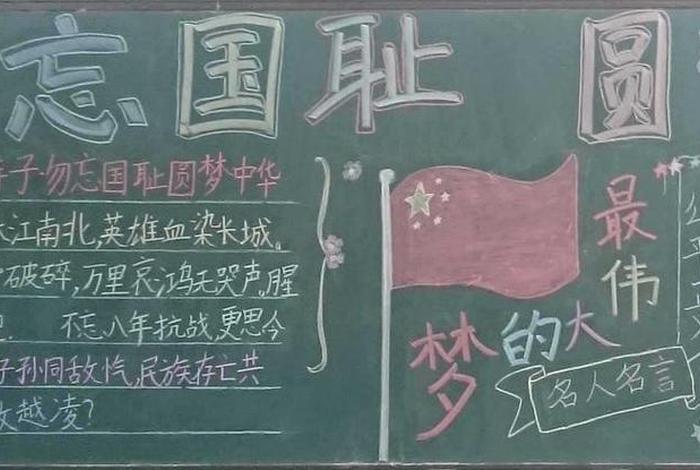 忘国耻 圆
子·勿忘国耻圆梦中华
江南北,英雄血染长城。
破碎,万里哀鸿无哭声。腥
不忘八年抗战,更思今
子孙同敌忾,民族存亡共
越凌?
最伟大的梦
名人名言